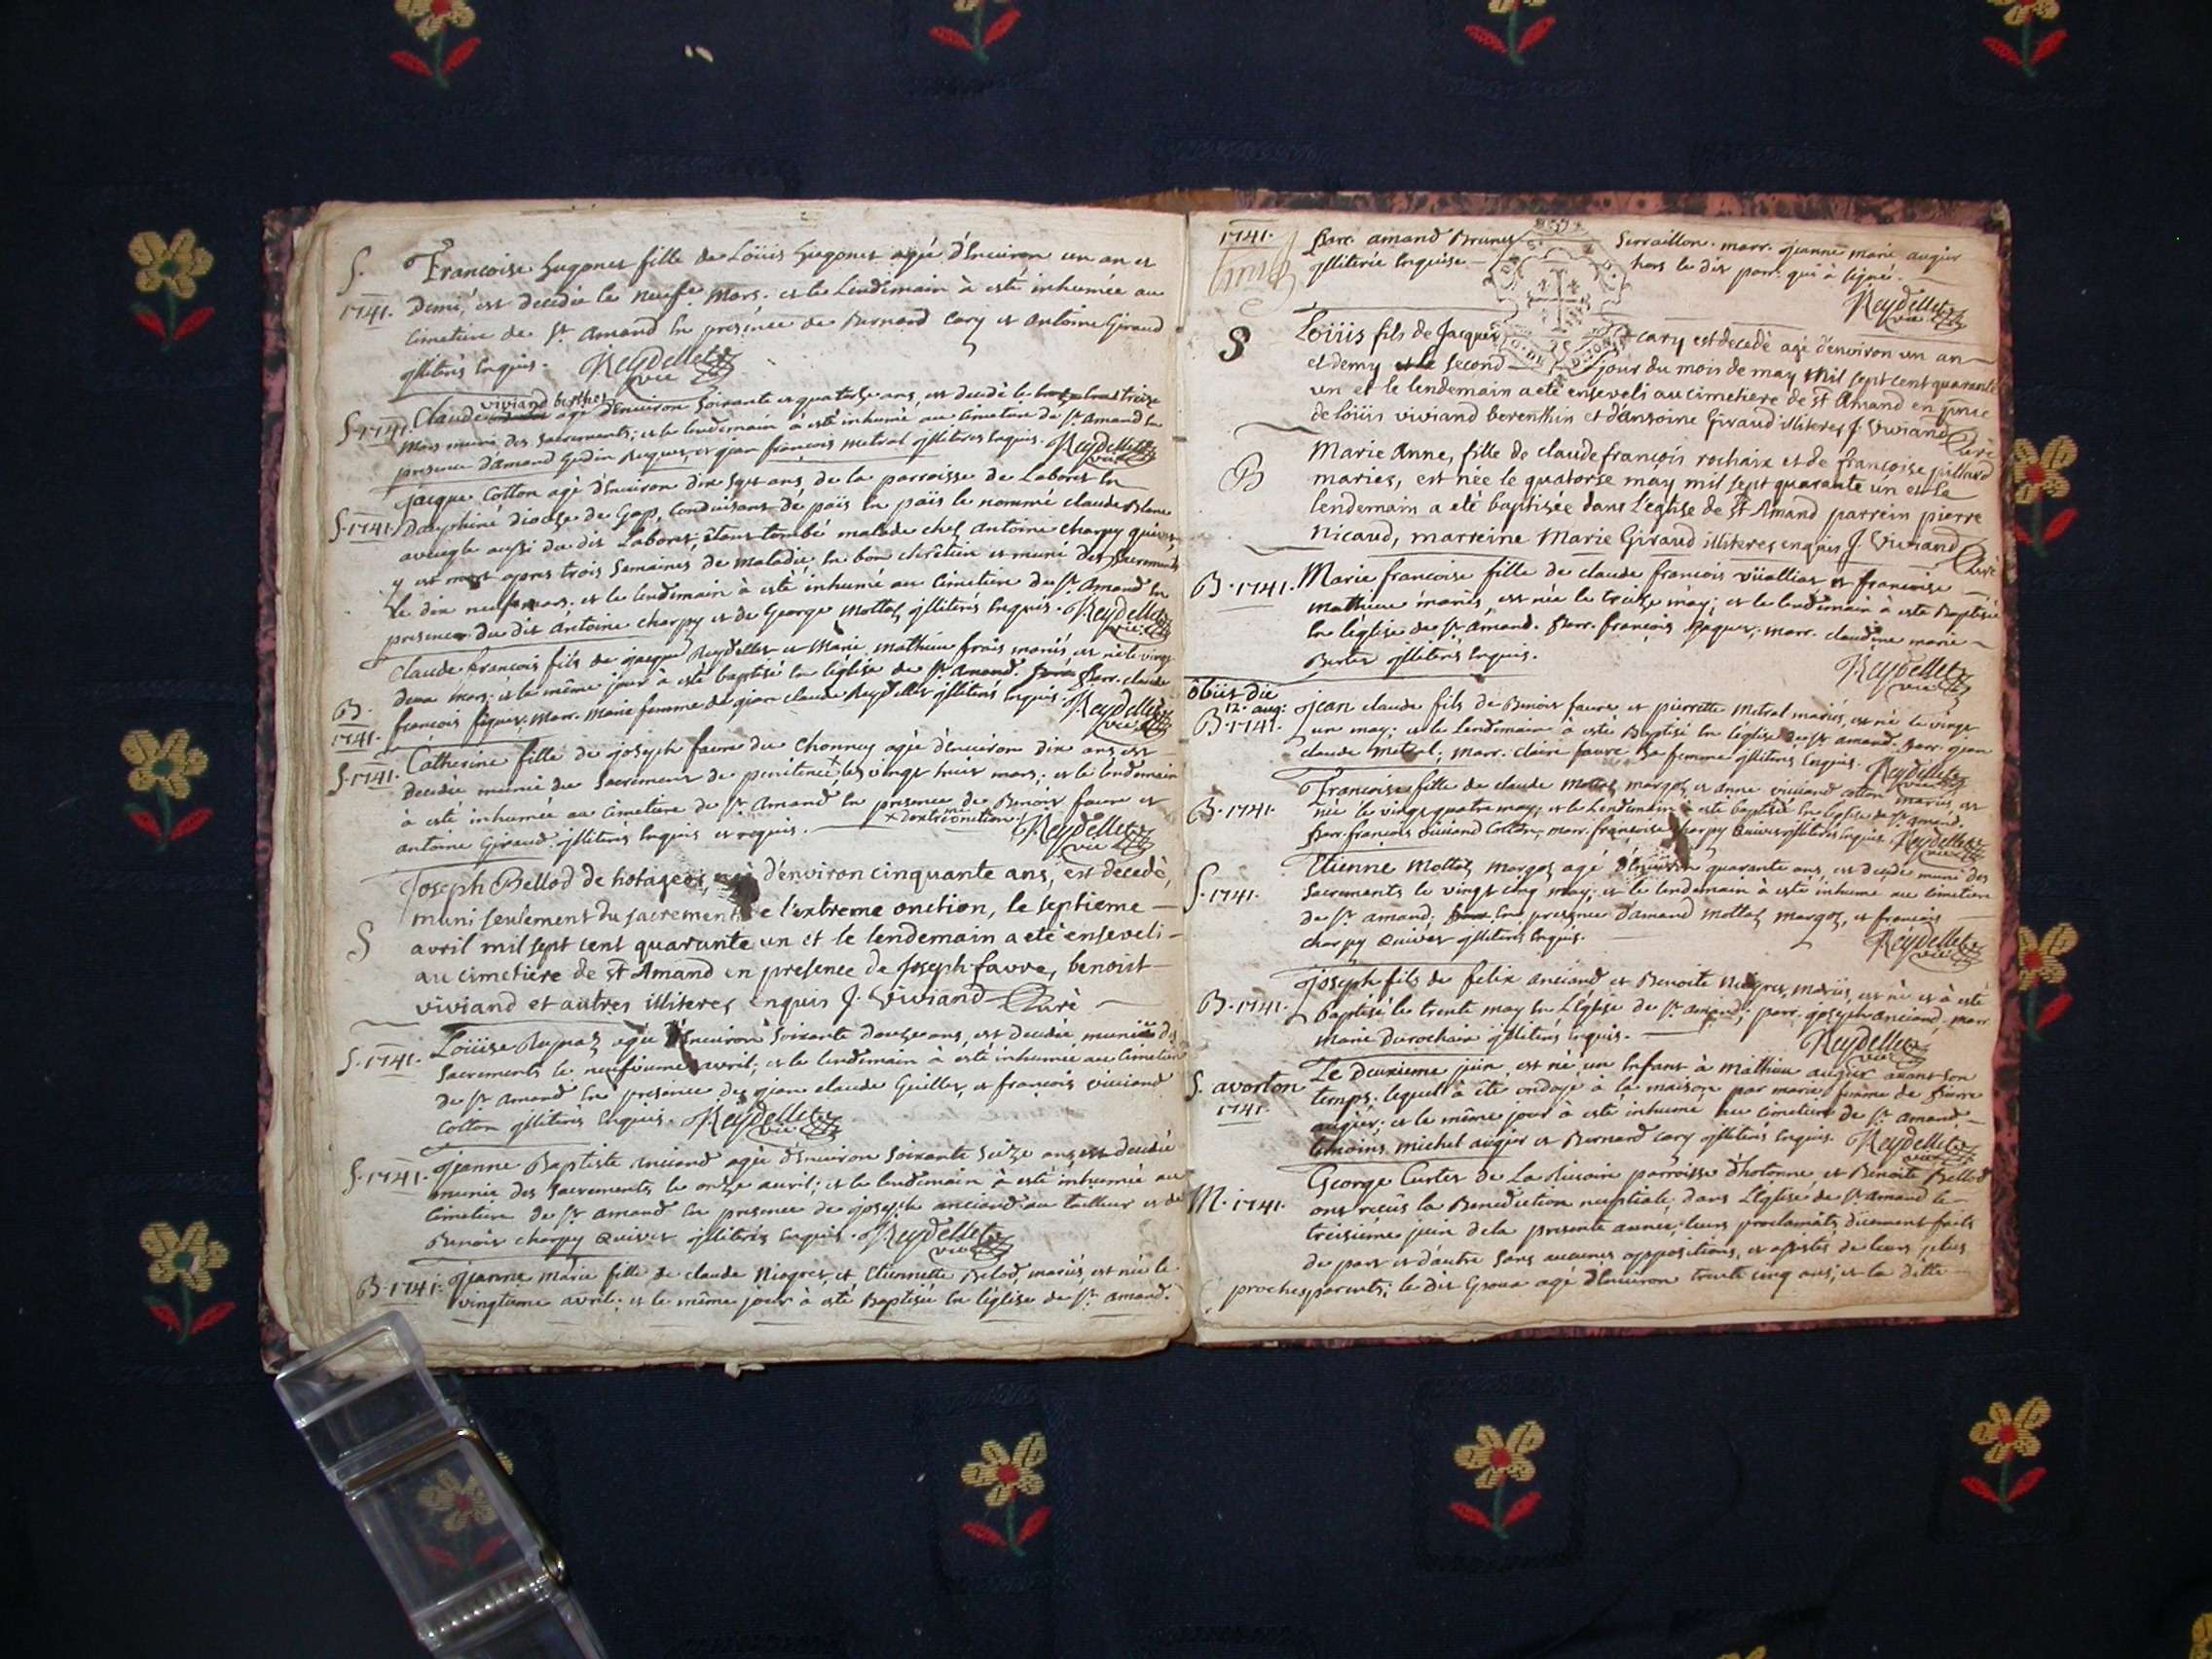 S.
1741.
Francoise hugonet fille de Loüis hugonet agée d'Environ un an et
Demi, est decedée le neufe mars. et le Lendemain à esté inhumée au
Cimetiere de St Amand En presence de Bernard Cary et antoine Giraud
jlliterés Enquis. Reydellet vic
S. 1741. Claude viviand berthet agé d'Environ soixante et quatorze ans, est decedé le treize
mars muni des sacrements; et le lendemain à esté inhumé au Cimetiere de St Amand En
presence d'amand Gudin et jean francois metral jlliteres Enquis. Reydellet vic
S. 1741.
Jacque Cotton agé d'Environ dix sept ans, de la parroisse de Laboret En
Dauphiné dioceze de Gap, Conduisant de païs En païs le nommé claude Blanc
aveugle aussi du dit Laboret, étant tombé malade chez antoine charpy quivet,
y est mort apres trois semaines de maladie, En bon chrêtien et muni des sacrements
le dix neuf mars. et le lendemain à esté inhumé au Cimetiere de St Amand En
presence du dit antoine charpy et de George mottaz jlliterés Enquis. Reydellet vic
B.
1741.
Claude francois fils de jacque Reydellet et Marie mathieu frais mariés, est né le vingt
deux mars; et le même jour à esté baptisé En l'église de St Amand. parr. claude
francois marr. marie femme de jean claude Reydellet jlliterés Enquis. Reydellet vic
S. 1741. Catherine fille de joseph favre du Chonney agée d'Environ dix ans est
Decedée munie du sacrement de penitence x le vingt huit mars; et le lendemain
à esté inhumée au Cimetiere de St Amand En presence de Benoit favre et
antoine Giraud jlliterés Enquis et requis. x d'extreonction. Reydellet vic
S
Joseph Bellod de hotageoz, agé d'environ cinquante ans, est decedé,
muni seulement du sacrement de l'extreme onction, le septieme
avril mil sept cent quarante un et le lendemain a eté enseveli
au cimetiere de st Amand en presence de Joseph favre, benoist
viviand et autres illiteres enquis J. Viviand Curé
S. 1741. Loüise agée d'Environ soixante douze ans, est decedée munie des
sacrements le neufvieme avril; et le lendemain à esté inhumée au Cimetiere
de St Amand En presence de jean claude Guillet, et francois viviand
Cotton jlliterés Enquis. Reydellet vic
S. 1741. Jeanne Baptiste anciand agée d'Environ soixante seize ans est decedée
munie des sacrements le onze avril; et le lendemain à esté inhumée au
Cimetiere de St amand En presence de joseph anciand tailleur et de
Benoit charpy Quivet jlliterés Enquis. Reydellet vic
B. 1741. Jeanne marie fille de claude Niogret et Etiennette Belod, mariés, est née le
vingtieme avril; et le même jour à eté Baptisée En l'église de St Amand.
1741.
Parr. amand Brunet Serraillon. marr. jeanne marie augier
jlliterée Enquise hors le dit parr. qui à signé.
Reydellet vic
S
Loüis fils de Jacques cary est decedé agé d'environ un an
et demy le second jour du mois de may mil sept cent quarante
un et le lendemain a eté enseveli au cimetiere de st Amand en pnce
de loüis viviand berenthin et d'antoine Giraud illiteres J. Viviand Curé
B
Marie Anne, fille de claude françois rochaix et de françoise juilland
mariés, est née le quatorse may mil sept quarante un et le
lendemain a eté baptisée dans l'eglise de St Amand parrein pierre
nicaud, marreine Marie Giraud illiteres enquis J. Viviand Curé
B. 1741. Marie francoise fille de claude francois vüallias et francoise
mathieu mariés, est née le treize may; et le lendemain à esté Baptisée
En l'église de St Amand. parr. francois jaquet; marr. claudine marie
Bertet jlliterés Enquis.
Reydellet vic
obiit die
12. aug:
B. 1741.
Jean claude fils de Benoit favre et pierrette metral mariés, est né le vingt
un may; et le Lendemain à esté Baptisé En l'église de St amand. parr. jean
claude metral; marr. claire favre sa femme jlliterés Enquis. Reydellet vic
B. 1741.
Francoise fille de claude mottaz margoz et anne viviand cotton mariés, est
née le vingt quatre may, et le Lendemain à esté baptisée En l'église de St amand.
parr. francois viviand Cotton, marr. francoise charpy Quivet jlliterés Enquis. Reydellet vic
S. 1741.
Etienne mottaz margoz agé d'Environ quarante ans, est decedé muni des
sacrements le vingt cinq may; et le lendemain à esté inhumé au Cimetiere
de St amand; En presence d'amand mottaz margoz, et francois
charpy Quivet jlliterés Enquis.
Reydellet vic
B. 1741.
Joseph fils de felix anciand et Benoite Niogret, mariés, est né et à esté
baptisé le trente may En l'église de St Amand; parr. joseph anciand, marr.
marie Durochain jlliterés Enquis. Reydellet vic
S. avorton
1741.
Le deuxieme juin, est né, un Enfant à mathieu augier avant son
temps, lequel à été ondoyé à la maison par marie femme de pierre
augier; et le même jour à esté inhumé au Cimetiere de St Amand.
temoins michel augier et Bernard Cary jlliterés Enquis. Reydellet vic
M. 1741.
George Curtet de La parroisse d'hotonne, et Benoite Bellod
ont recüs la Benediction nuptiale, dans L'église de St Amand le
troisiéme juin de la presente année, leurs proclamats düement faits
de part et d'autre sans aucunes oppositions, et assistés de leurs plus
proches parents; le dit Epoux agé d'Environ trente cinq ans; et la ditte